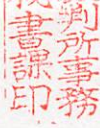 判所事務
書課印